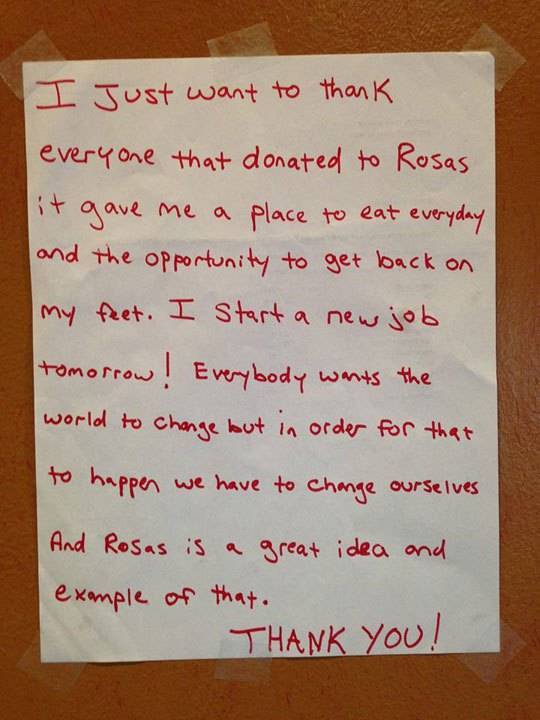 I Just want to thank
everyone that donated to Rosas
it gave me a place to eat everyday
and the opportunity to get back on
my feet. I start a new job
tomorrow! Everybody wants the
world to change but in order for that
to happen we have to change ourselves
And Rosas is a great idea and
example of that.
THANK YOU!